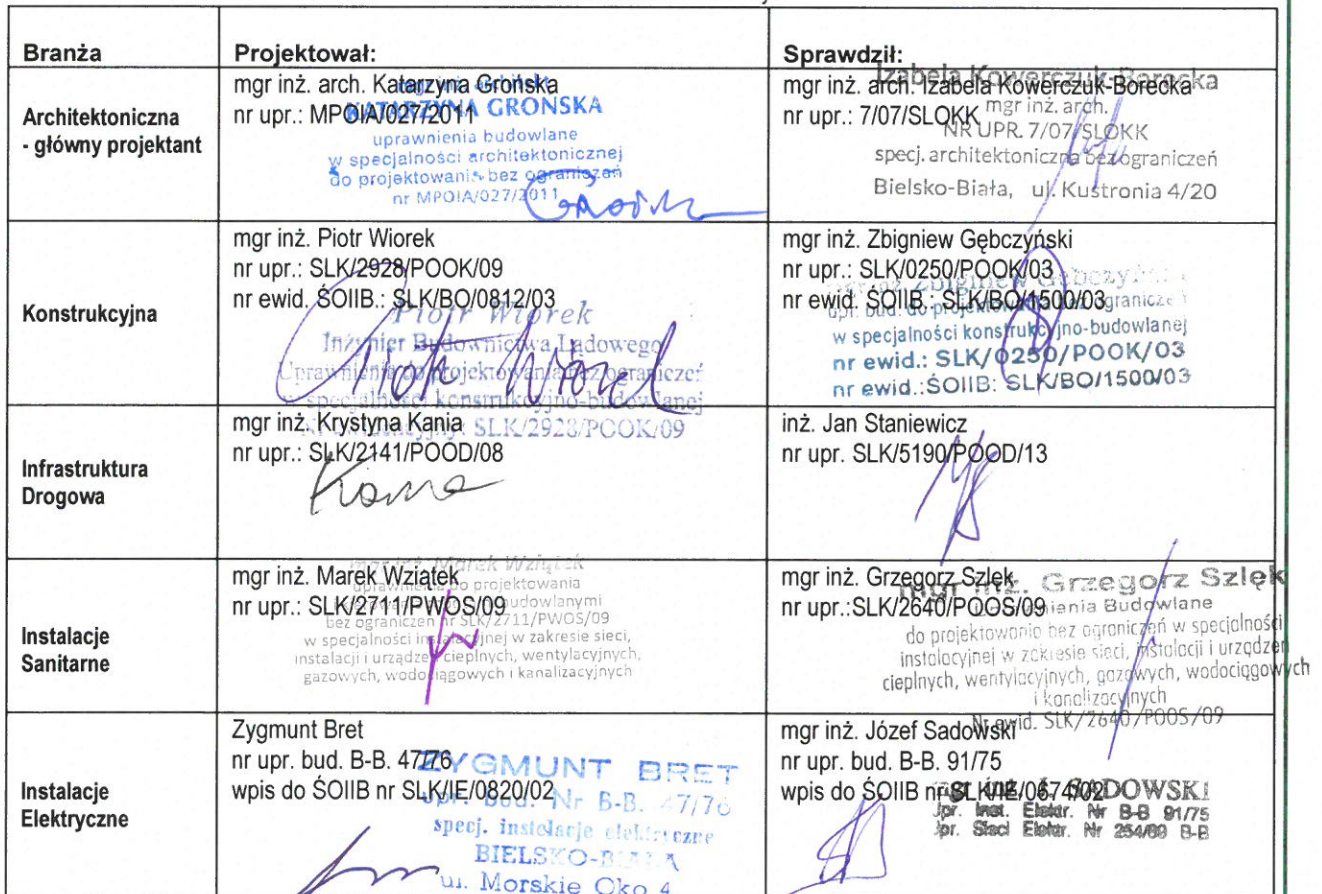 Branża
Projektował:
Sprawdził:
Architektoniczna
- główny projektant
mgr inż. arch. Katarzyna Grońska
nr upr.: MPOIA/027/2011
KATARZYNA GROŃSKA
uprawnienia budowlane
w specjalności architektonicznej
do projektowania bez ograniczeń
nr MPOIA/027/2011
mgr inż. arch. Izabela Kowerczuk-Borecka
nr upr.: 7/07/SLOKK
Izabela Kowerczuk-Borecka
mgr inż. arch.
NR UPR. 7/07/SLOKK
specj. architektoniczna bez ograniczeń
Bielsko-Biała, ul. Kustronia 4/20
Konstrukcyjna
mgr inż. Piotr Wiorek
nr upr.: SLK/2928/POOK/09
nr ewid. ŚOIIB.: SLK/BO/0812/03
Piotr Wiorek
Inżynier Budownictwa Lądowego
Uprawnienia do projektowania bez ograniczeń
w specjalności konstrukcyjno-budowlanej
SLK/2928/POOK/09
Piotr Wiorek
mgr inż. Zbigniew Gębczyński
nr upr.: SLK/0250/POOK/03
nr ewid. ŚOIIB.: SLK/BO/1500/03
Zbigniew Gębczyński
upr. bud. do projektowania bez ogranicze
w specjalności konstrukcyjno-budowlanej
nr ewid.: SLK/0250/POOK/03
nr ewid.:ŚOIIB: SLK/BO/1500/03
Infrastruktura
Drogowa
mgr inż. Krystyna Kania
nr upr.: SLK/2141/POOD/08
Kania
inż. Jan Staniewicz
nr upr. SLK/5190/POOD/13
Instalacje
Sanitarne
mgr inż. Marek Wziątek
nr upr.: SLK/2711/PWOS/09
mgr inż. Marek Wziątek
uprawnienia do projektowania
budowlanymi
bez ograniczeń nr SLK/2711/PWOS/09
w specjalności instalacyjnej w zakresie sieci,
instalacji i urządzeń cieplnych, wentylacyjnych,
gazowych, wodociągowych i kanalizacyjnych
mgr inż. Grzegorz Szlęk
nr upr.:SLK/2640/POOS/09
mgr inż. Grzegorz Szlęk
Uprawnienia Budowlane
do projektowania bez ograniczeń w specjalności
instalacyjnej w zakresie sieci, instalacji i urządzeń
cieplnych, wentylacyjnych, gazowych, wodociągowych
i kanalizacyjnych
Nr ewid. SLK/2640/POOS/09
Instalacje
Elektryczne
Zygmunt Bret
nr upr. bud. B-B. 47/76
wpis do ŚOIIB nr SLK/IE/0820/02
ZYGMUNT BRET
Upr. Bud. Nr B-B. 47/76
specj. instalacje elektryczne
BIELSKO-BIAŁA
ul. Morskie Oko 4
mgr inż. Józef Sadowski
nr upr. bud. B-B. 91/75
wpis do ŚOIIB nr SLK/IE/0674/02
SADOWSKI
Upr. Inst. Elektr. Nr B-B 91/75
Upr. Sieci Elektr. Nr 254/89 B-B